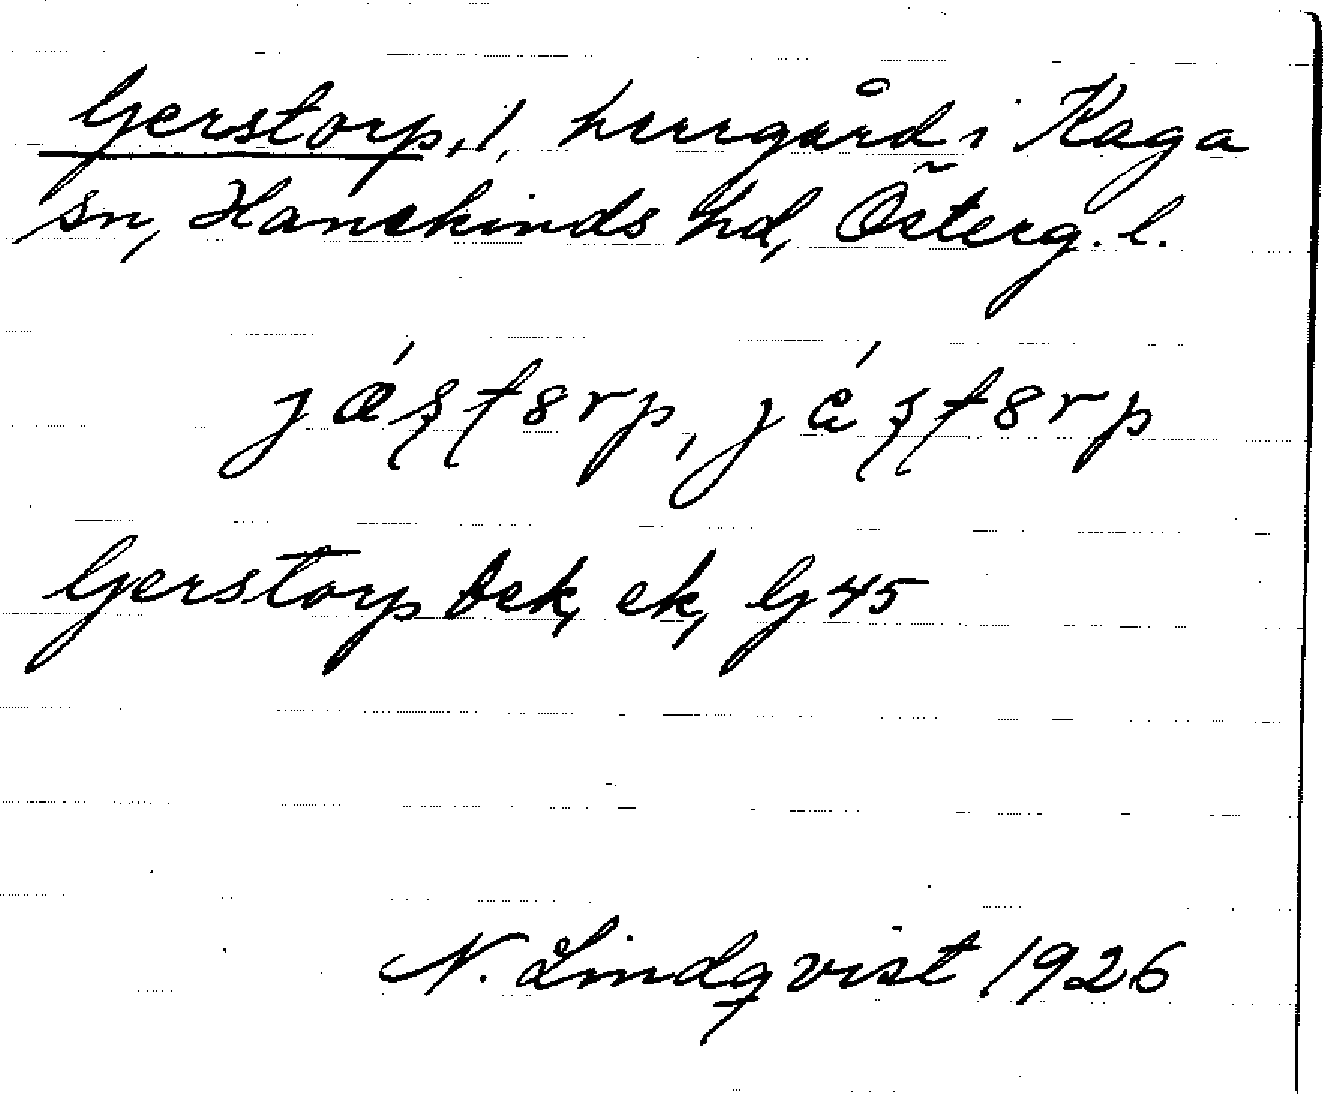 Gerstorp, 1, herrgård i Kaga
sn, Hanekinds hd, Österg. l.
jǽʂʈ8rp, jé̞ʂʈ8rp
Gerstorp bek, ek, G 45
N. Lindqvist 1926